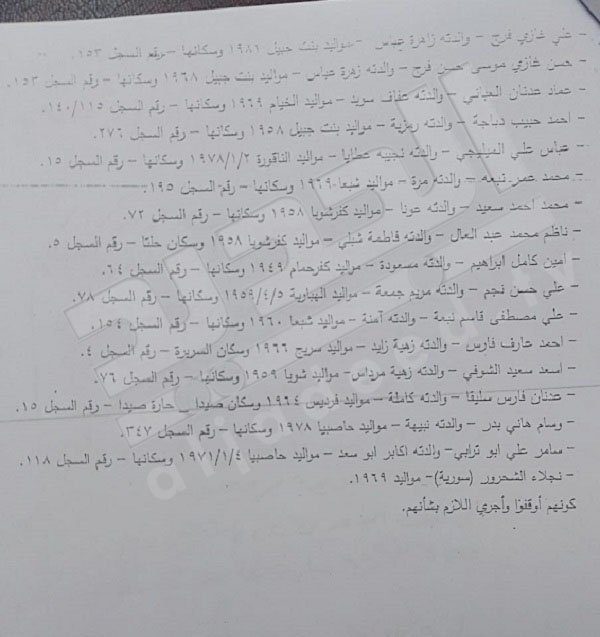 - علي غازي فرج - والدته زاهرة عباس - مواليد بنت جبيل ١٩٨١ وسكانها - رقم السجل ١٥٣.
- حسن غازي موسى حسن فرج - والدته زهرة عباس - مواليد بنت جبيل ١٩٦٨ وسكانها - رقم السجل ١٥٣.
- عماد عدنان العياني - والدته عفاف سويد - مواليد الخيام ١٩٦٩ وسكانها - رقم السجل ١٤٠/١١٥.
- احمد حبيب دباجة - والدته - مواليد بنت جبيل ١٩٥٨ وسكانها - رقم السجل ٢٧٦.
- عباس علي - والدته نجيبه عطايا - مواليد الناقورة ١٩٧٨/١/٢ وسكانها - رقم السجل ١٥.
- محمد عمر نبعه - والدته مرة - مواليد شبعا ١٩٦٩ وسكانها - رقم السجل ١٩٥.
- محمد احمد سعيد - والدته عونا - مواليد كفرشوبا ١٩٥٨ وسكانها - رقم السجل ٧٢.
- ناظم محمد عبد العال - والدته فاطمة شبلي - مواليد كفرشوبا ١٩٥٨ وسكان حلتا - رقم السجل ٥.
- امين كامل ابراهيم - والدته مسعودة - مواليد كفرحمام ١٩٤٩ وسكانها - رقم السجل ٦٤.
- علي حسن فجم - والدته مريم جمعة - مواليد الهبارية ١٩٥٩/٤/٥ وسكانها - رقم السجل ٧٨.
- علي مصطفى قاسم نبعة - والدته آمنة - مواليد شبعا ١٩٦٠ وسكانها - رقم السجل ١٥٤.
- احمد عارف فارس - والدته زهية زايد - مواليد سريح ١٩٦٦ وسكان السريرة - رقم السجل ٤.
- اسعد سعيد الشوفي - والدته زهية مرداس- مواليد شويا ١٩٥٩ وسكانها - رقم السجل ٧٦.
- عدنان فارس سليقا - والدته كاملة - مواليد فرديس ١٩٦٤ وسكان صيدا _ حارة صيدا - رقم السجل ١٥.
- وسام هاني بدر - والدته نبيهة - مواليد حاصبيا ١٩٧٨ وسكانها - رقم السجل ٣٤٧.
- سامر علي ابو ترابي- والدته اكابر ابو سعد - مواليد حاصبيا ١٩٧١/١/٤ وسكانها - رقم السجل ١١٨.
- نجلاء الشحرور (سورية)- مواليد ١٩٦٩.
كونهم أوقفوا وأجري اللازم بشأنهم.